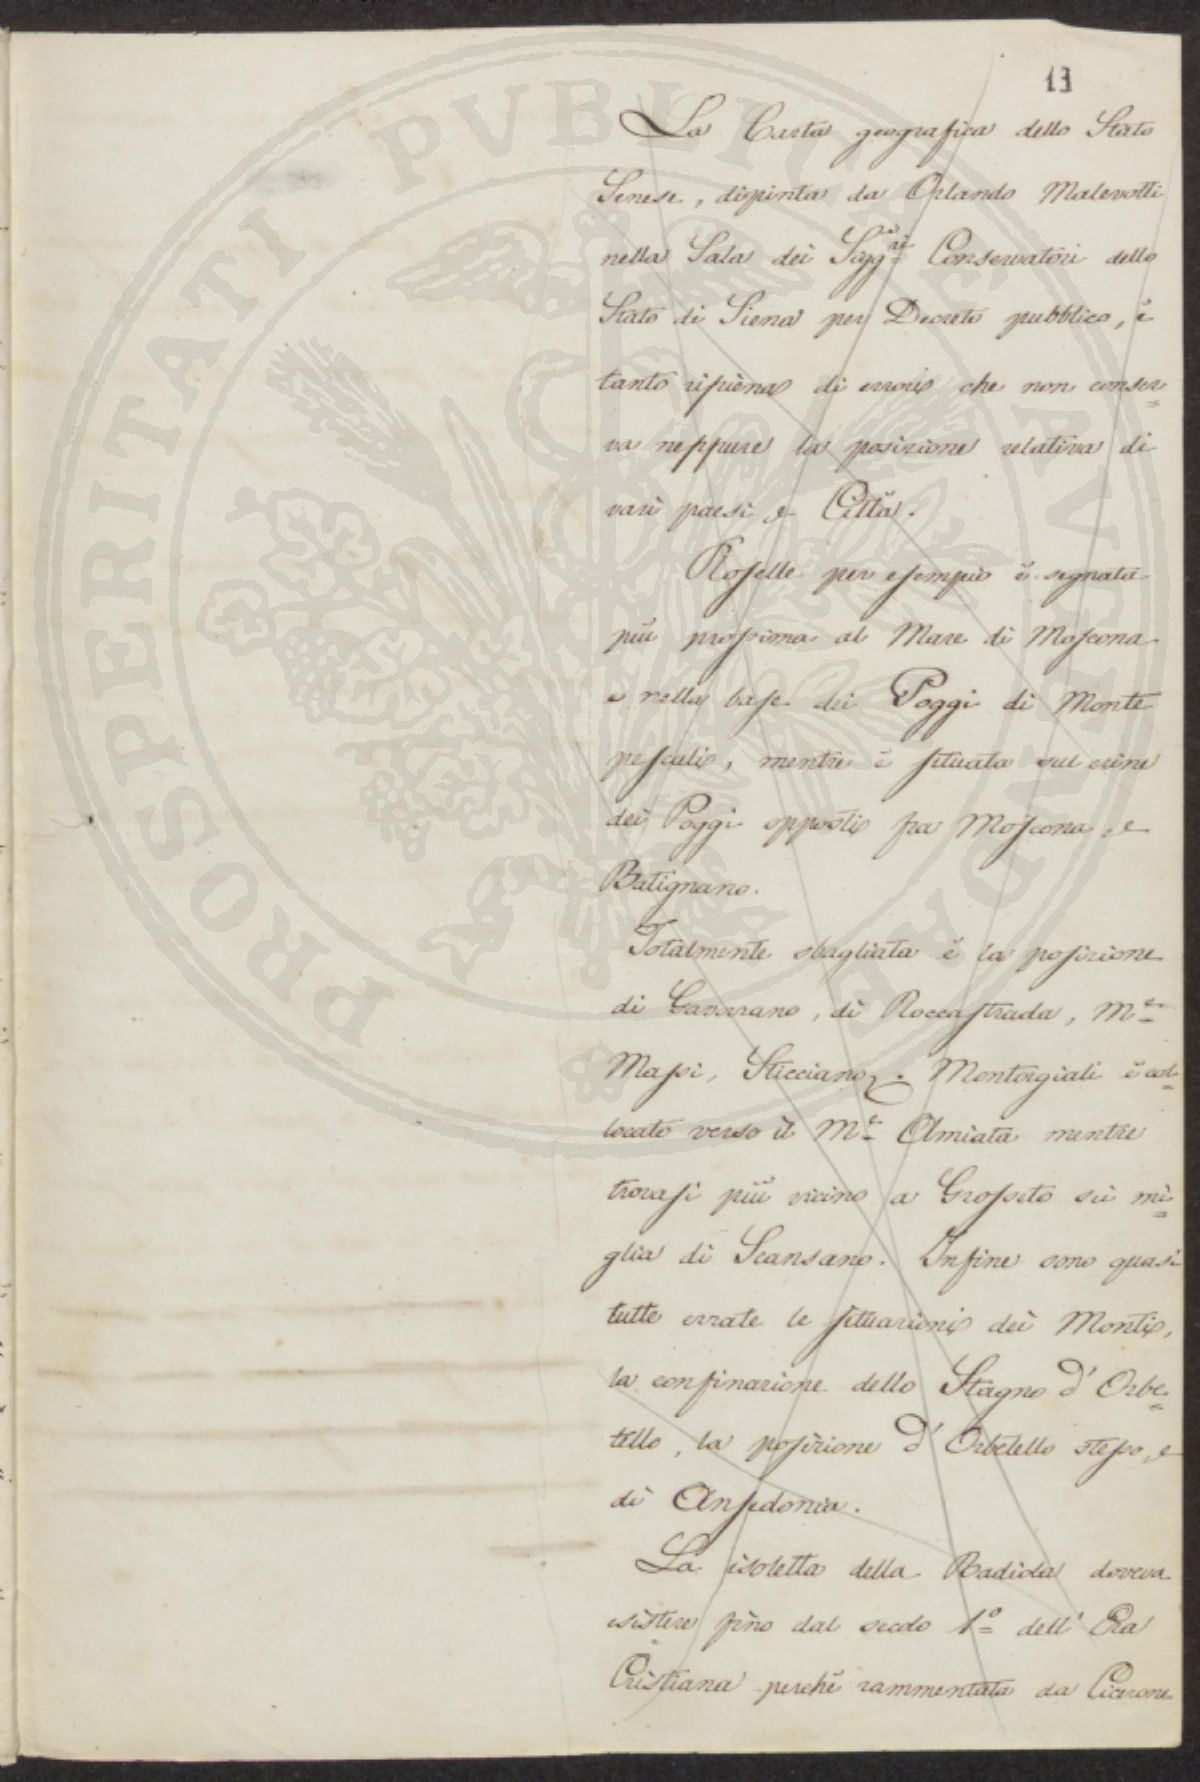 13
La Carta geografica dello Stato
Senese, dipinta da Orlando Malevolti
nella Sala dei Sigg.ri Conservatori dello
Stato di Siena per Decreto pubblico, è
tanto ripiena di errori che non conser=
va neppure la posizione relativa di
varii paesi e Città.
Roselle per esempio è segnata
più prossima al Mare di Moscona
e nella base dei Poggi di Monte
pescali, mentre è situata sul crine
dei Poggi opposti fra Moscona, e
Batignano.
Totalmente sbagliata è la posizione
di Gavorrano, di Roccastrada, M.e
Massi, Sticciano. Montorgiali è col=
locato verso il M.e Amiata mentre
trovasi più vicino a Grosseto sei mi=
glia di Scansano. Infine sono quasi
tutte errate le situazioni dei Monti,
la confinazione dello Stagno d'Orbe=
tello, la posizione d'Orbetello stesso, e
di Ansedonia.
La isoletta della Badiola doveva
esistere fino dal secolo 1.o dell'Era
Cristiana perchè rammentata da Cicerone
PROSPERITATI PUBLICAE AUGENDAE